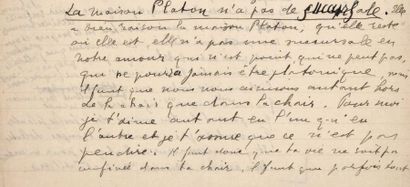 La maison Platon n'a pas de succursale. Elle
a bien raison la maison Platon, qu'elle reste
où elle est, elle n'a pas une succursale en
notre amour qui n'est point qui ne peut pas,
qui ne pourra jamais être platonique,
il faut que nous nous aimions autant hors
de la chair que dans la chair. Pour moi
je t'aime autant en l'une qu'en
l'autre et je t'donne que ce n'est pas
peu dire. Il faut donc que ta vie ne soit pas
confinée dans ta chair, il faut que parfois tout